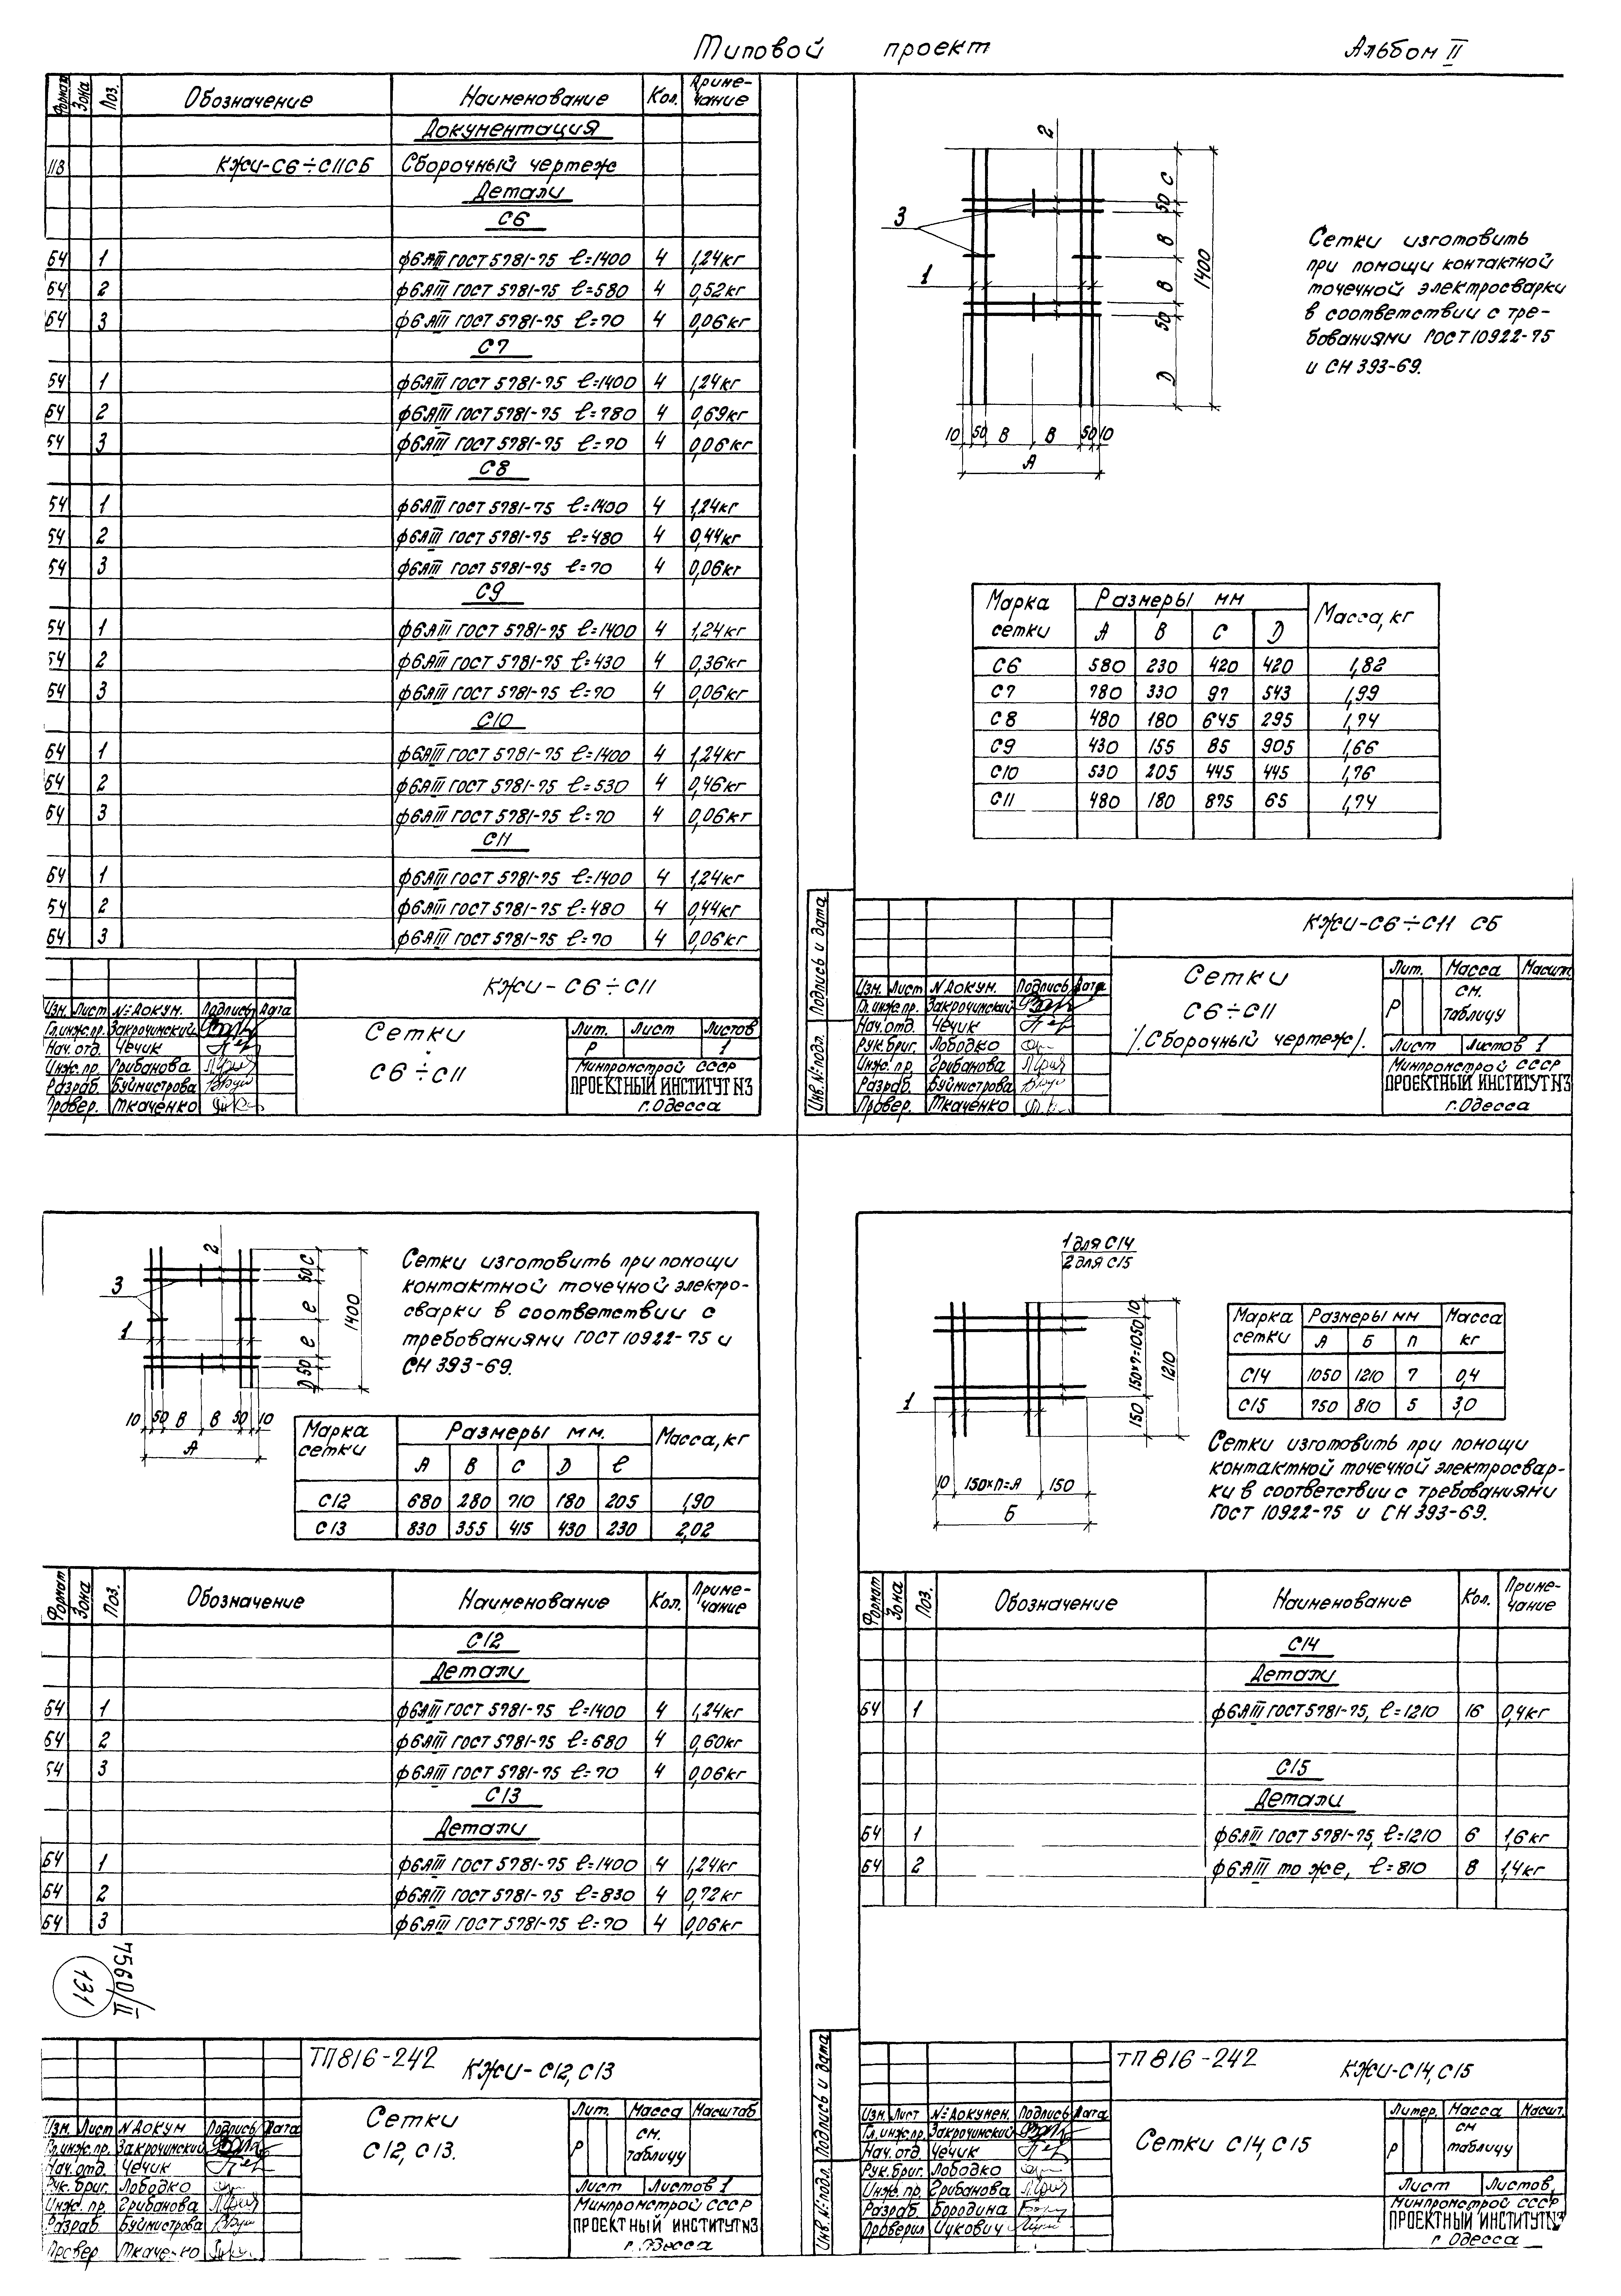 Типовой проект
Альбом II
Формат Зона Поз. Обозначение Наименование Кол. Приме-чание
Документация
11В КЖИ-С6÷С11СБ Сборочный чертеж
Детали
С6
Б4 1 ф6АIII ГОСТ 5781-75 ℓ=1400 4 1,24кг
Б4 2 ф6АIII ГОСТ 5781-75 ℓ=580 4 0,52кг
Б4 3 ф6АIII ГОСТ 5781-75 ℓ=70 4 0,06кг
С7
Б4 1 ф6АIII ГОСТ 5781-75 ℓ=1400 4 1,24кг
Б4 2 ф6АIII ГОСТ 5781-75 ℓ=780 4 0,69кг
Б4 3 ф6АIII ГОСТ 5781-75 ℓ=70 4 0,06кг
С8
Б4 1 ф6АIII ГОСТ 5781-75 ℓ=1400 4 1,24кг
Б4 2 ф6АIII ГОСТ 5781-75 ℓ=480 4 0,44кг
Б4 3 ф6АIII ГОСТ 5781-75 ℓ=70 4 0,06кг
С9
Б4 1 ф6АIII ГОСТ 5781-75 ℓ=1400 4 1,24кг
Б4 2 ф6АIII ГОСТ 5781-75 ℓ=430 4 0,36кг
Б4 3 ф6АIII ГОСТ 5781-75 ℓ=70 4 0,06кг
С10
Б4 1 ф6АIII ГОСТ 5781-75 ℓ=1400 4 1,24кг
Б4 2 ф6АIII ГОСТ 5781-75 ℓ=530 4 0,46кг
Б4 3 ф6АIII ГОСТ 5781-75 ℓ=70 4 0,06кг
С11
Б4 1 ф6АIII ГОСТ 5781-75 ℓ=1400 4 1,24кг
Б4 2 ф6АIII ГОСТ 5781-75 ℓ=480 4 0,44кг
Б4 3 ф6АIII ГОСТ 5781-75 ℓ=70 4 0,06кг
КЖИ-С6÷С11
Изм. Лист № докум. Подпись Дата
Гл.инж.пр. Закрочинский
Нач.отд. Чечик
Инж.пр. Грибанова
Разраб. Буйнистрова
Провер. Ткаченко
Сетки
С6÷С11
Лит. Лист Листов
Р 1
Минпромстрой СССР
ПРОЕКТНЫЙ ИНСТИТУТ №3
г.Одесса
2
3
1
50 С
В
В
50
D
1400
10 50 В В 50 10
А
Сетки изготовить
при помощи контактной
точечной электросварки
в соответствии с тре-
бованиями ГОСТ 10922-75
и СН 393-69.
Марка сетки Размеры мм Масса, кг
А В С D
С6 580 230 420 420 1,82
С7 780 330 97 543 1,99
С8 480 180 645 295 1,74
С9 430 155 85 905 1,66
С10 530 205 445 445 1,76
С11 480 180 875 65 1,74
Инв.№подл. Подпись и дата
КЖИ-С6÷С11 СБ
Изм. Лист № докум. Подпись Дата
Гл.инж.пр. Закрочинский
Нач.отд. Чечик
Рук.бриг. Лободко
Инж.пр. Грибанова
Разраб. Буйнистрова
Провер. Ткаченко
Сетки
С6÷С11
/.Сборочный чертеж/.
Лит. Масса Масшт.
Р см. таблицу
Лист Листов 1
Минпромстрой СССР
ПРОЕКТНЫЙ ИНСТИТУТ №3
г.Одесса
2
3
1
50 С
е
е
D 50
1400
10 50 В В 50 10
А
Сетки изготовить при помощи
контактной точечной электро-
сварки в соответствии с
требованиями ГОСТ 10922-75 и
СН 393-69.
Марка сетки Размеры мм. Масса, кг
А В С D ℓ
С12 680 280 710 180 205 1,90
С13 830 355 415 430 230 2,02
Формат Зона Поз. Обозначение Наименование Кол. Приме-чание
С12
Детали
Б4 1 ф6АIII ГОСТ 5781-75 ℓ=1400 4 1,24кг
Б4 2 ф6АIII ГОСТ 5781-75 ℓ=680 4 0,60кг
Б4 3 ф6АIII ГОСТ 5781-75 ℓ=70 4 0,06кг
С13
Детали
Б4 1 ф6АIII ГОСТ 5781-75 ℓ=1400 4 1,24кг
Б4 2 ф6АIII ГОСТ 5781-75 ℓ=830 4 0,72кг
Б4 3 ф6АIII ГОСТ 5781-75 ℓ=70 4 0,06кг
7560/II
131
ТП816-242 КЖИ-С12, С13
Изм. Лист № докум Подпись Дата
Гл.инж.пр. Закрочинский
Нач.отд. Чечик
Рук.бриг. Лободко
Инж.пр. Грибанова
Разраб. Буйнистрова
Провер Ткаченко
Сетки
С12, С13.
Лит. Масса Масштаб
Р см. таблицу
Лист Листов 1
Минпромстрой СССР
ПРОЕКТНЫЙ ИНСТИТУТ №3
г.Одесса
1 для С14
2 для С15
1
10
150×7=1050
150
1210
10 150×п=А 150
Б
Марка сетки Размеры мм Масса кг
А Б п
С14 1050 1210 7 0,4
С15 750 810 5 3,0
Сетки изготовить при помощи
контактной точечной электросвар-
ки в соответствии с требованиями
ГОСТ 10922-75 и СН 393-69.
Формат Зона Поз. Обозначение Наименование Кол. Приме-чание
С14
Детали
Б4 1 ф6АIII ГОСТ 5781-75, ℓ=1210 16 0,4кг
С15
Детали
Б4 1 ф6АIII ГОСТ 5781-75, ℓ=1210 6 1,6кг
Б4 2 ф6АIII то же, ℓ=810 8 1,4кг
Инв.№подл. Подпись и дата
ТП816-242 КЖИ-С14, С15
Изм. Лист № докумен. Подпись Дата
Гл.инж.пр. Закрочинский
Нач.отд. Чечик
Рук.бриг. Лободко
Инж.пр. Грибанова
Разраб. Бородина
Проверил Цукович
Сетки С14, С15
Литер. Масса Масшт.
Р см таблицу
Лист Листов,
Минпромстрой СССР
ПРОЕКТНЫЙ ИНСТИТУТ №3
г Одесса